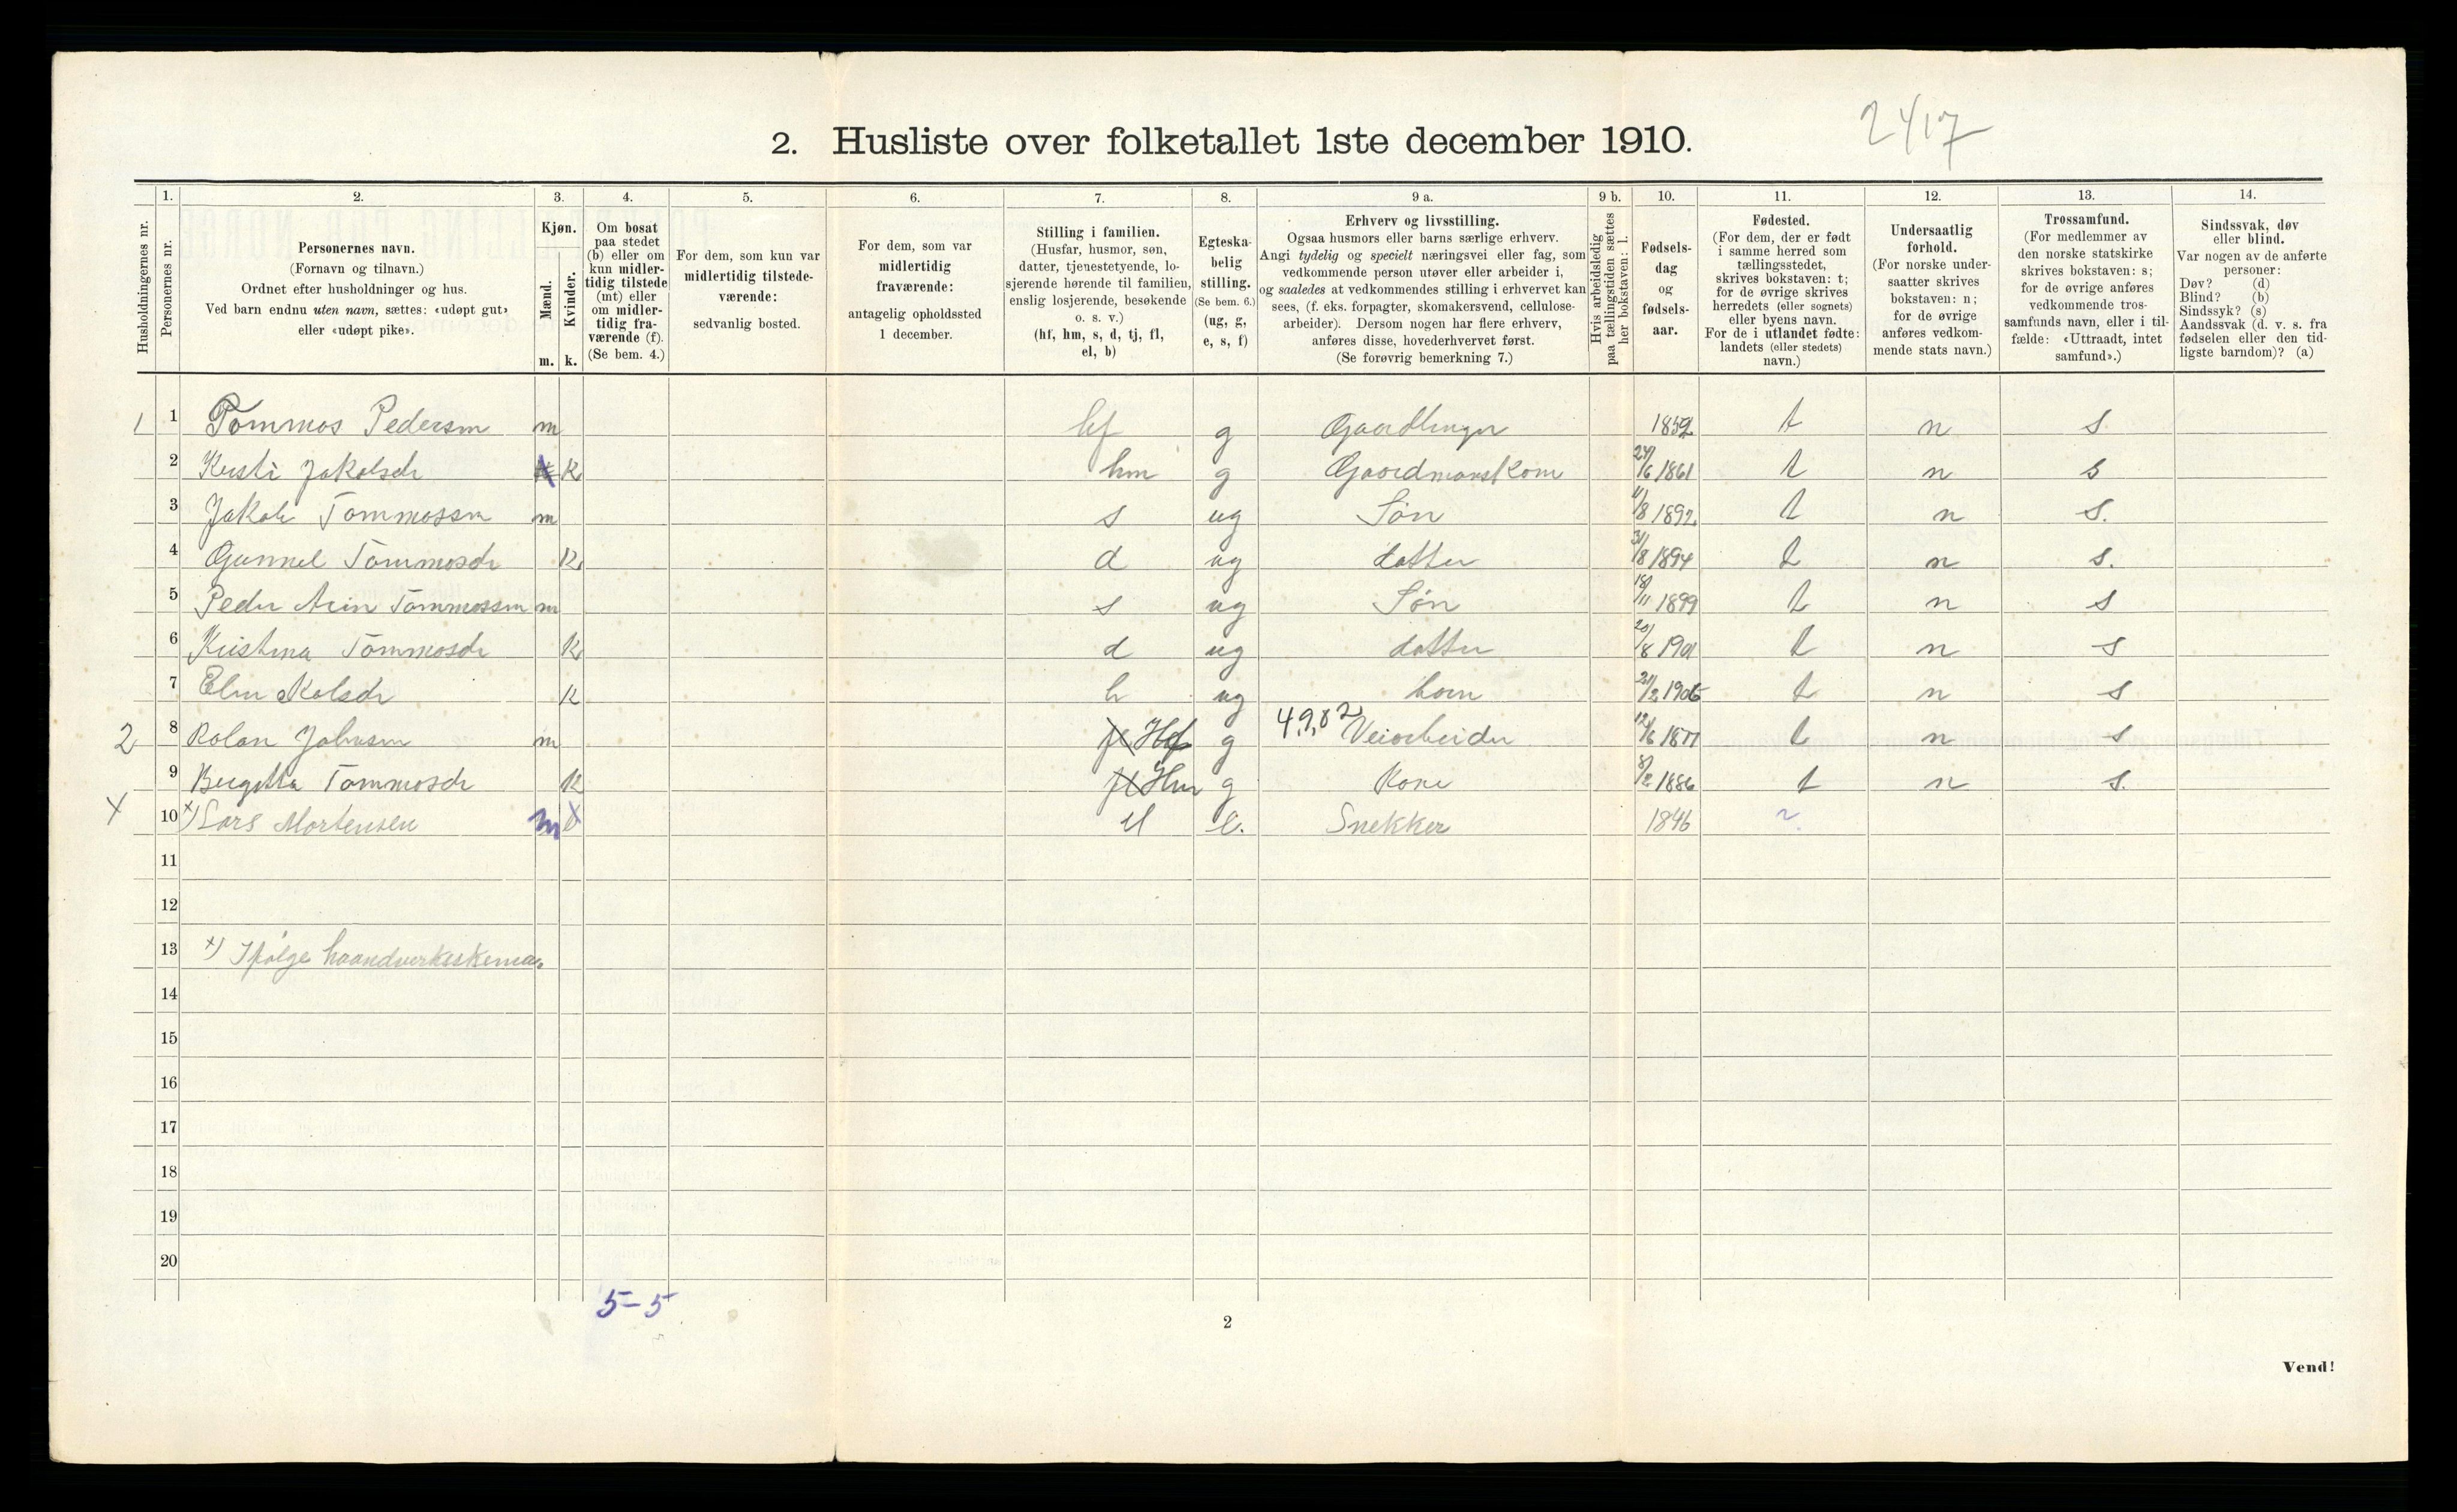 2417
2. Husliste over folketallet 1ste december 1910.
Husholdningernes nr.
1. Personernes nr.
2. Personernes navn. (Fornavn og tilnavn.) Ordnet efter husholdninger og hus. Ved barn endnu uten navn, sættes: «udøpt gut» eller «udøpt pike».
3. Kjøn. Mænd. m. Kvinder. k.
4. Om bosat paa stedet (b) eller om kun midlertidig tilstede (mt) eller om midlertidig fraværende (f). (Se bem. 4.)
5. For dem, som kun var midlertidig tilstedeværende: sedvanlig bosted.
6. For dem, som var midlertidig fraværende: antagelig opholdssted 1 december.
7. Stilling i familien. (Husfar, husmor, søn, datter, tjenestetyende, losjerende hørende til familien, enslig losjerende, besøkende o. s. v.) (hf, hm, s, d, tj, fl, el, b)
8. Egteskabelig stilling. (Se bem. 6.) (ug, g, e, s, f)
9 a. Erhverv og livsstilling. Ogsaa husmors eller barns særlige erhverv. Angi tydelig og specielt næringsvei eller fag, som vedkommende person utøver eller arbeider i, og saaledes at vedkommendes stilling i erhvervet kan sees, (f. eks. forpagter, skomakersvend, cellulosearbeider). Dersom nogen har flere erhverv, anføres disse, hovederhvervet først. (Se forøvrig bemerkning 7.)
9 b. Hvis arbeidsledig paa tællingstiden sættes her bokstaven: l.
10. Fødselsdag og fødselsaar.
11. Fødested. (For dem, der er født i samme herred som tællingsstedet, skrives bokstaven: t; for de øvrige skrives herredets (eller sognets) eller byens navn. For de i utlandet fødte: landets (eller stedets) navn.)
12. Undersaatlig forhold. (For norske undersaatter skrives bokstaven: n; for de øvrige anføres vedkommende stats navn.)
13. Trossamfund. (For medlemmer av den norske statskirke skrives bokstaven: s; for de øvrige anføres vedkommende trossamfunds navn, eller i tilfælde: «Uttraadt, intet samfund».)
14. Sindssvak, døv eller blind. Var nogen av de anførte personer: Døv? (d) Blind? (b) Sindssyk? (s) Aandssvak (d. v. s. fra fødselen eller den tidligste barndom)? (a)
1 1 Tommos Pedersen m hf g 1852 t n s.
2 Kirsti Jakobsdr k hm g Gaardmanskone 24/6 1861 t n s
3 Jakob Tommossen m s ug Søn 11/8 1892 t n s.
4 Gunnel Tommosdr k d ug datter 31/8 1894 t n s.
5 Peder Tommossen m s ug Søn 18/11 1899 t n s
6 Kristina Tommosdr k d ug datter 20/8 1901 t n s
7 k ug 21/2 t n s
2 8 m fl Hf g 4.9,82 Veiarbeider 12/6 t n s
9 Birgitta Tommosdr k fl Hm g Kone 8/2 1886 t n s.
x 10 x) Lars Mortensen m el e. Snekker 1846 ~
11
12
13 x) Ifølge haandverkskema.
14
15
16
17
18
19
20
5-5
2
Vend!